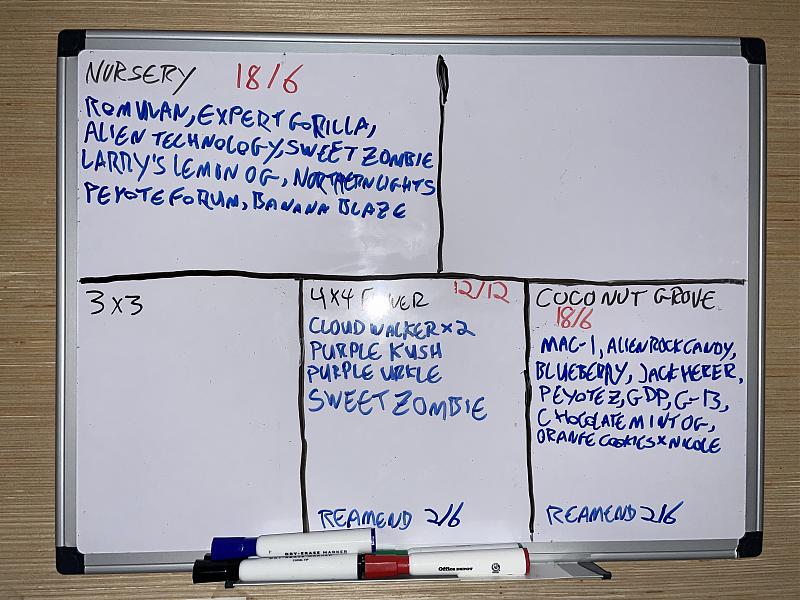 NURSERY 18/6
ROMULAN, EXPERT GORILLA,
ALIEN TECHNOLOGY, SWEET ZOMBIE
LARRY'S LEMIN OG, NORTHERN LIGHTS
PEYOTE FORUM, BANANA BLAZE
3X3
4X4 FLOWER 12/12
CLOUD WALKER X2
PURPLE KUSH
PURPLE URKLE
SWEET ZOMBIE
REAMEND 2/6
COCONUT GROVE
18/6
MAC-1, ALIEN ROCK CANDY,
BLUEBERRY, JACK HERER,
PEYOTE Z, GDP, G-13,
CHOCOLATE MINT OG,
ORANGE COOKIES X NICOLE
REAMEND 2/6
DRY-ERASE MARKER
Office DEPOT